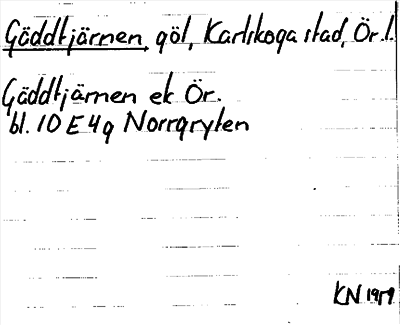 Gäddtjärnen, göl, Karlskoga stad, Ör. l.
Gäddtjärnen ek Ör.
bl. 10 E 4 g Norrgryten
KN 1959